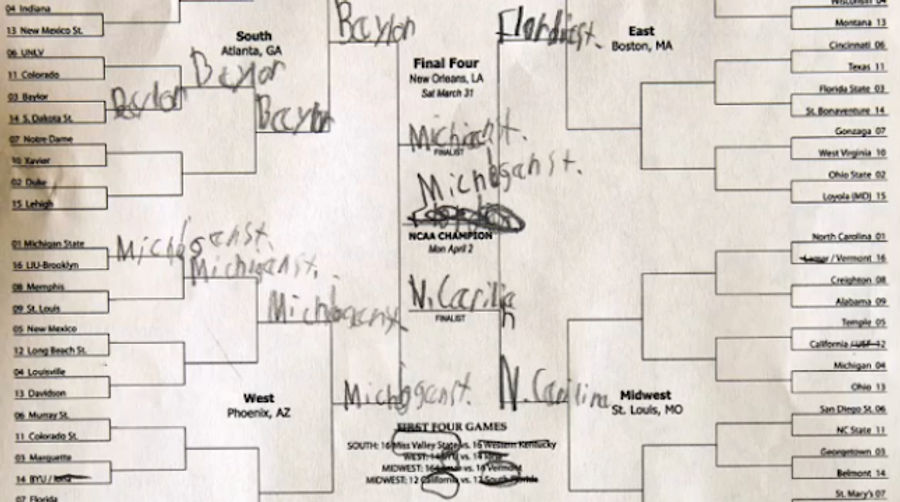 04 Indiana
13 New Mexico St.
06 UNLV
11 Colorado
03 Baylor
14 S. Dakota St.
07 Notre Dame
10 Xavier
02 Duke
15 Lehigh
South
Atlanta, GA
Baylor
Baylor
Baylor
Baylor
01 Michigan State
16 LIU-Brooklyn
08 Memphis
09 St. Louis
05 New Mexico
12 Long Beach St.
04 Louisville
13 Davidson
06 Murray St.
11 Colorado St.
03 Marquette
14 BYU /
07 Florida
Michoganst.
Michiganst.
Michoganst
Michogganst.
West
Phoenix, AZ
Final Four
New Orleans, LA
Sat March 31
Michiganst.
FINALIST
Michoganst.
NCAA CHAMPION
Mon April 2
N. Carilin
FINALIST
FIRST FOUR GAMES
SOUTH: 16 Miss Valley State vs. 16 Western Kentucky
WEST: 14 BYU vs. 14 Iona
MIDWEST: 16 Lamar vs. 16 Vermont
MIDWEST: 12 California vs. 12 South Florida
East
Boston, MA
Wisconsin 04
Montana 13
Cincinnati 06
Texas 11
Florida State 03
St. Bonaventure 14
Gonzaga 07
West Virginia 10
Ohio State 02
Loyola (MD) 15
N. Carilina
Midwest
St. Louis, MO
North Carolina 01
Lamar / Vermont 16
Creighton 08
Alabama 09
Temple 05
California / USF 12
Michigan 04
Ohio 13
San Diego St. 06
NC State 11
Georgetown 03
Belmont 14
St. Mary's 07